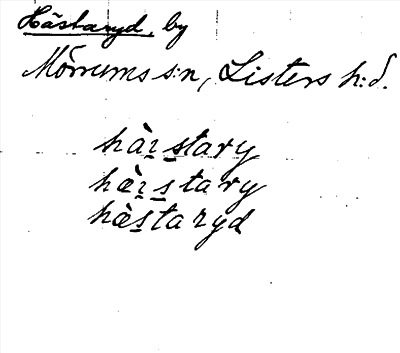 Hästaryd, by
Mörrums s:n, Listers h:d.
hàɪ̠s̠tary
hæ̀ɪ̠s̠tary
hæ̀s̠taryd